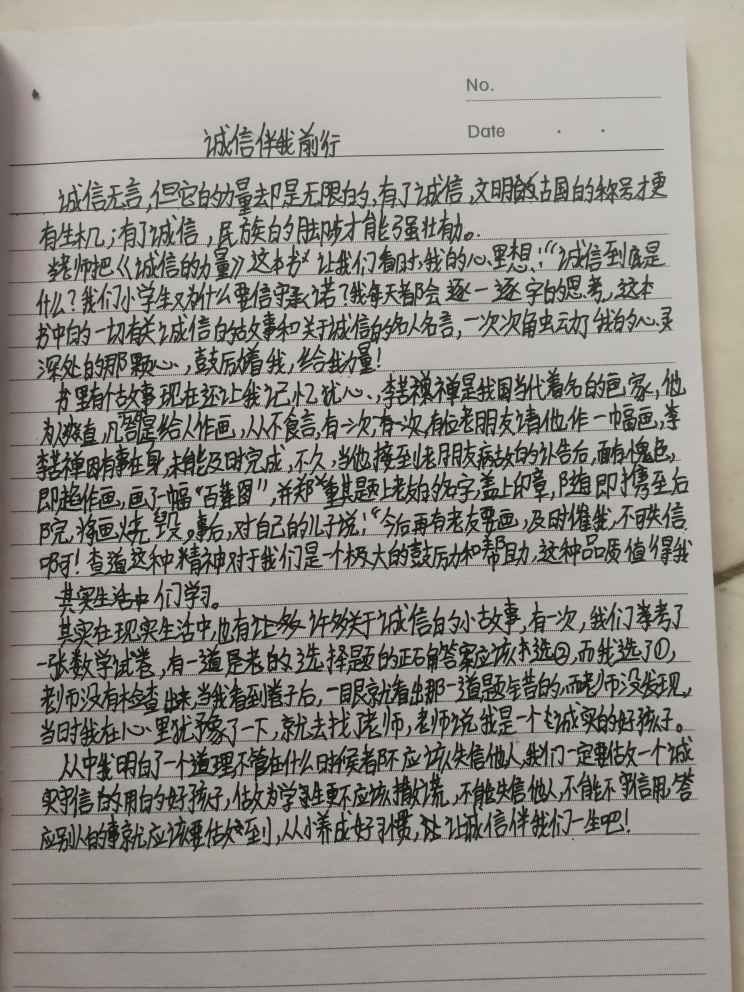 No.
Date
诚信伴我前行
诚信无言,但它的力量却是无限的,有了诚信,文明古国的称号才更
有生机;有了诚信,民族的脚步才能强壮有力。
老师把《诚信的力量》这本书让我们看时,我的心里想:“诚信到底是
什么?我们小学生又为什么要信守承诺?我每天都会逐一逐字的思考,这本
书中的一切有关诚信的故事和关于诚信的名人名言,一次次触动了我的心灵
深处的那颗心,鼓励着我,给我力量!
书里有个故事现在还让我记忆犹心,李苦禅禅是我国当代着名的画家,他
为人爽直,凡答是给人作画,从不食言,有一次,有一次,有位老朋友请他作一幅画,李
李苦禅因有事在身,未能及时完成,不久,当他接到老朋友病故的讣告后,面有愧色,
即趋作画,画了一幅“百莲图”,并郑重其题上老友的名字,盖上印章,随即携至后
院,将画烧毁,事后,对自己的儿子说:“今后再有老友要画,及时催我,不可失信
啊!查道这种精神对于我们是一个极大的鼓励和帮助,这种品质值得我
其实生活中们学习。
其实在现实生活中,也有让多许多关于诚信的小古事,有一次,我们考考了
一张数学试卷,有一道是老的选择题的正确答案应该选②,而我选了①,
老师没有检查出来,当我看到卷子后,一眼就看出那一道题是错的,而老师没发现。
当时我在心里犹豫了一下,就去找了老师,老师说我是一个诚实的好孩子。
从中我明白了一个道理,不管在什么时候都不应该失信他人,我们一定要做一个诚
实守信的用的好孩子,做为学生更不应该撒谎,不能失信他人,不能不守信用,答
应别人的事就应该要做到,从小养成好习惯,让让诚信伴我们一生吧!